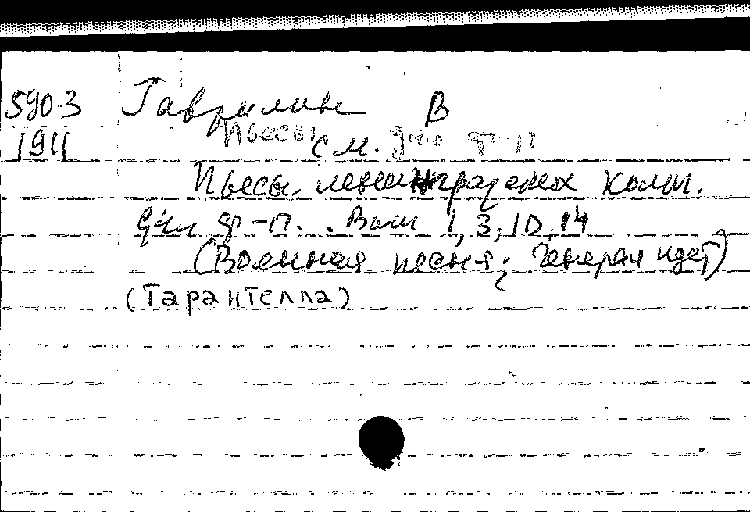 5903 Гаврилин В
1911 Пьесы для ф-п
см.
Пьесы ленинградских комп.
для ф-п. Вып 1, 3, 10, 14
(Военная песня; Генерал идет)
(Тарантелла)